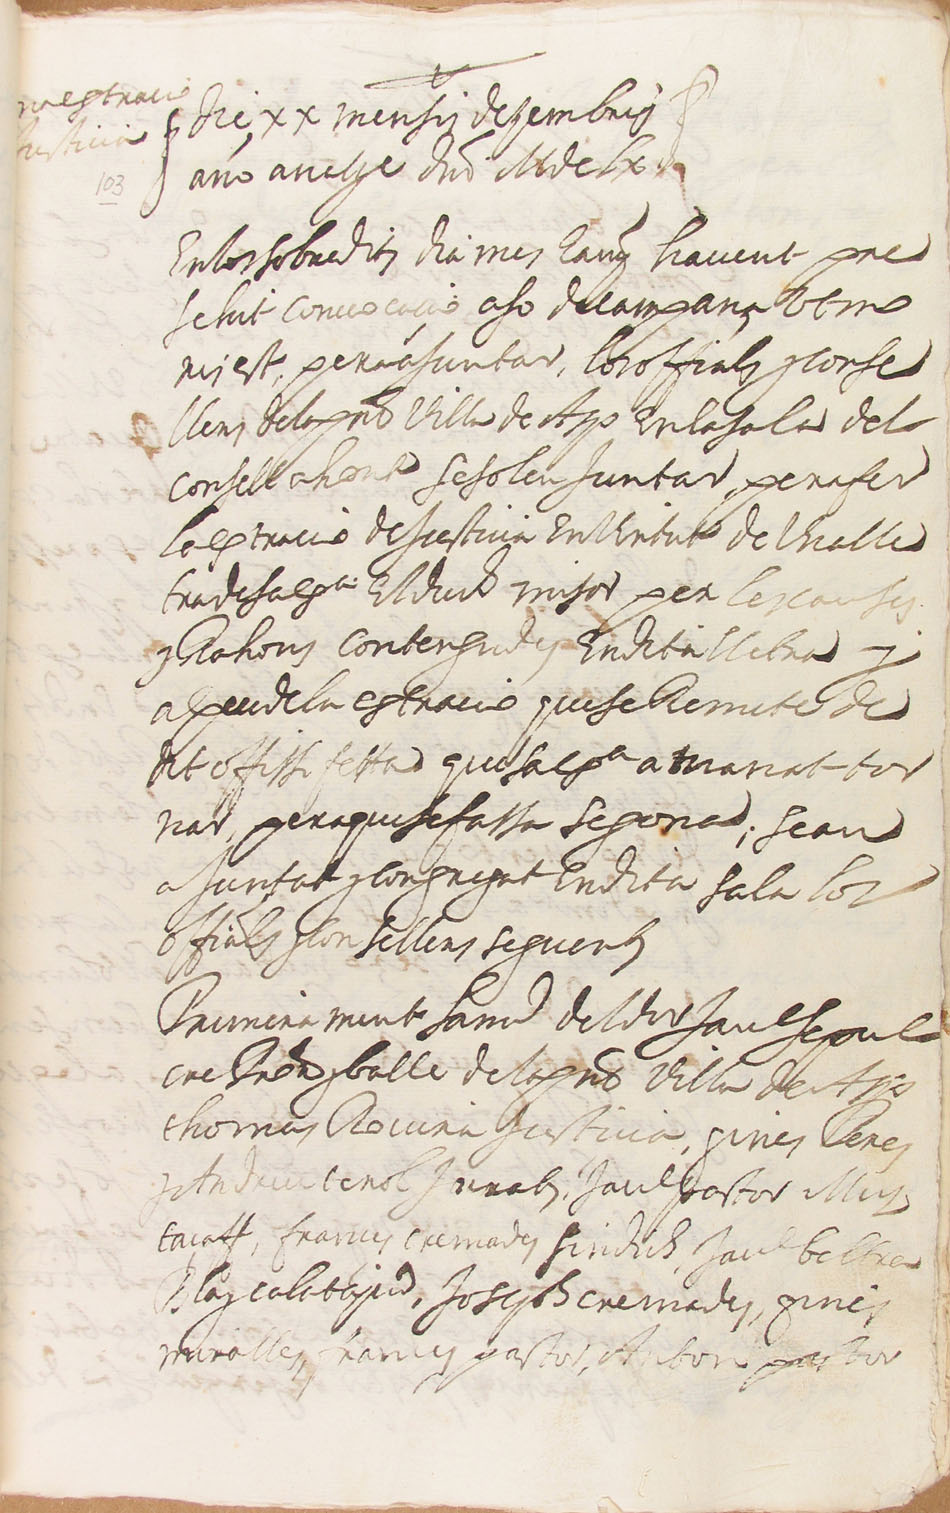 estracio
Justicia
103
Die xx mensis dezembris
ano a nate dni MdcLx
En los sobredits dia mes e any havent pre
sehit convocacio a so de campana ut mo
ris est, pera ajuntar, los offials y conse
llers de la pnt Villa de Asp en la sala del
consell ahont se solen juntar, pera fer
la estracio de justicia en virtut de lle
tra de sa exa. El duch mijor per les causes
y Rahons contengudes en dita lletra y
a peu de la estracio que se Remite de
dit offissi festa que sa exa a manat tor
nar, pera que se fassa segona, sean
ajuntat y congregat en dita sala los
offials y consellers seguents
Primerament lo del dor Jaume Sepul
cre y balle de la pnt Villa de Asp
thomas justicia, gines Peres
y Andreu cerol Jurats, Jaume pastor Mus
tacaff, frances cremades sindich, Jaume beltra
Blay calatayud, Joseph cremades, gines
miralles, frances pastor, Anton pastor